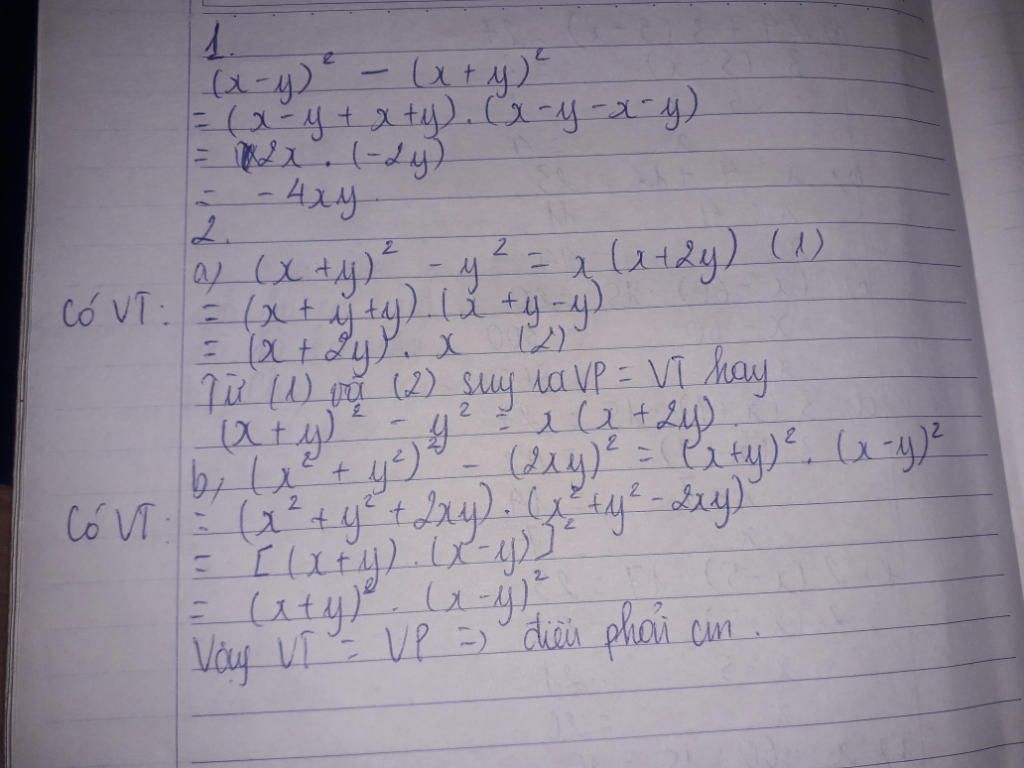 1.
(x-y)² - (x+y)²
= (x-y+x+y).(x-y-x-y)
= 2x.(-2y)
= -4xy.
2.
a) (x+y)² - y² = x(x+2y) (1)
Có VT: = (x+y+y).(x+y-y)
= (x+2y).x (2)
Từ (1) và (2) suy ra VP = VT hay
(x+y)² - y² = x(x+2y)
b, (x²+y²)² - (2xy)² = (x+y)².(x-y)²
Có VT: = (x²+y²+2xy).(x²+y²-2xy)
= [(x+y).(x-y)]²
= (x+y)².(x-y)²
Vậy VT = VP => điều phải cm.